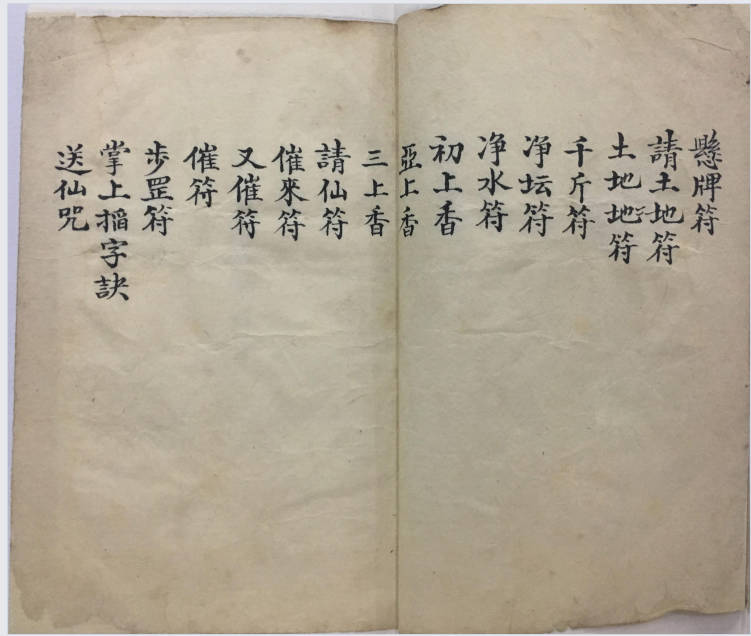 懸牌符
請土地符
土地地符
千斤符
净坛符
净水符
初上香
亞上香
三上香
請仙符
催來符
又催符
催符
步罡符
掌上搯字訣
送仙咒